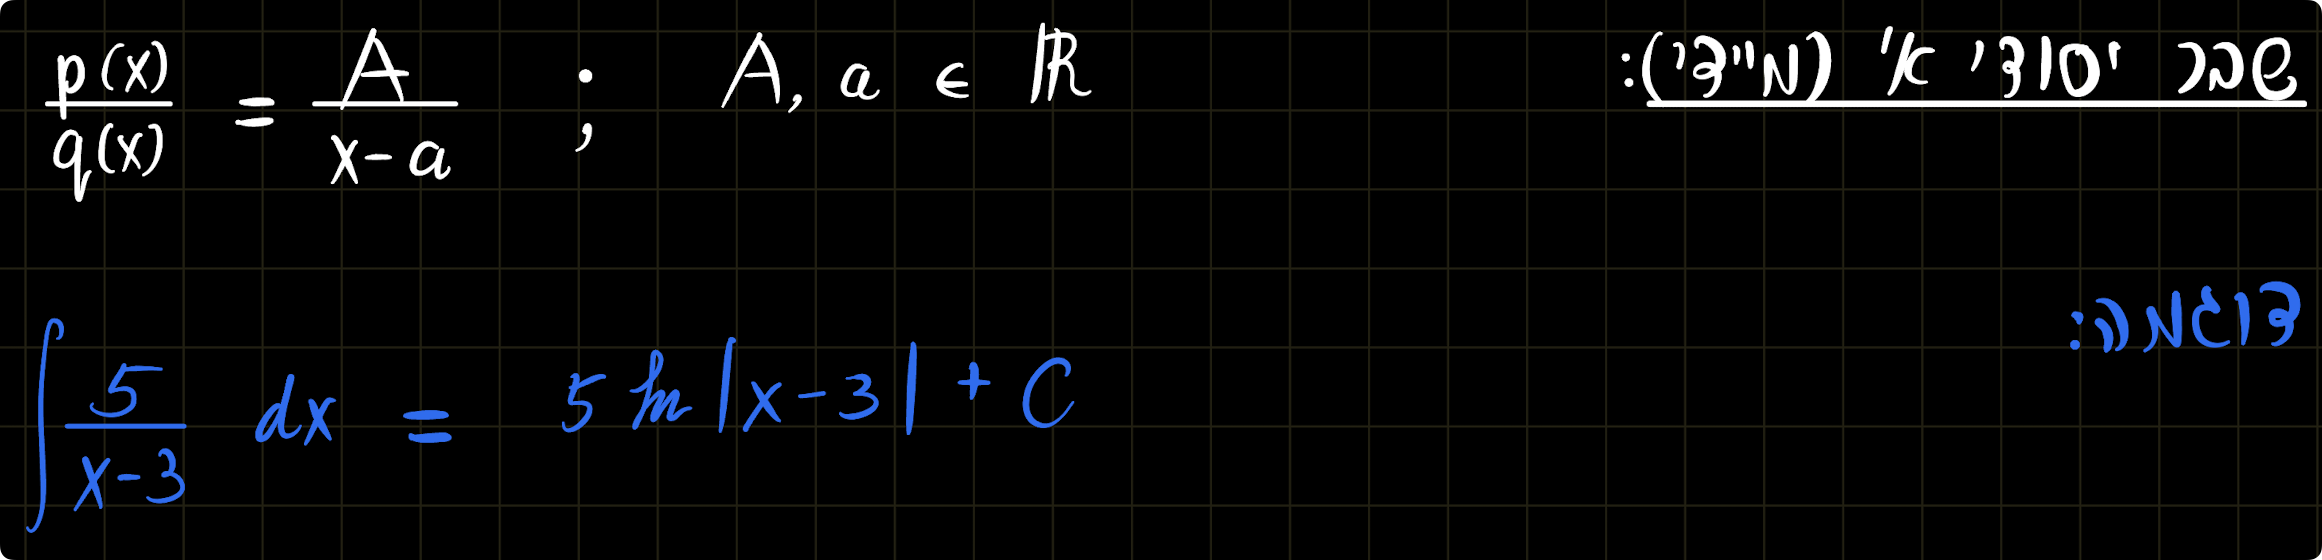 שבר יסודי א' (מ"די):
p(x)/q(x) = A/(x-a) ; A, a ∈ ℝ
דוגמה:
∫ 5/(x-3) dx = 5 ln|x-3| + C